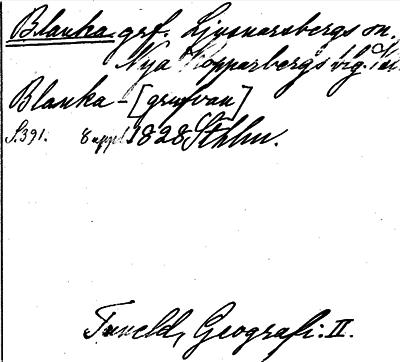 Blanka grf. Ljusnarsbergs sn.
Nya Kopparbergs blg.
Blanka - [grufvan]
S.391. 8 uppl. 1828 Sthlm.
Tuneld, Geografi. II.